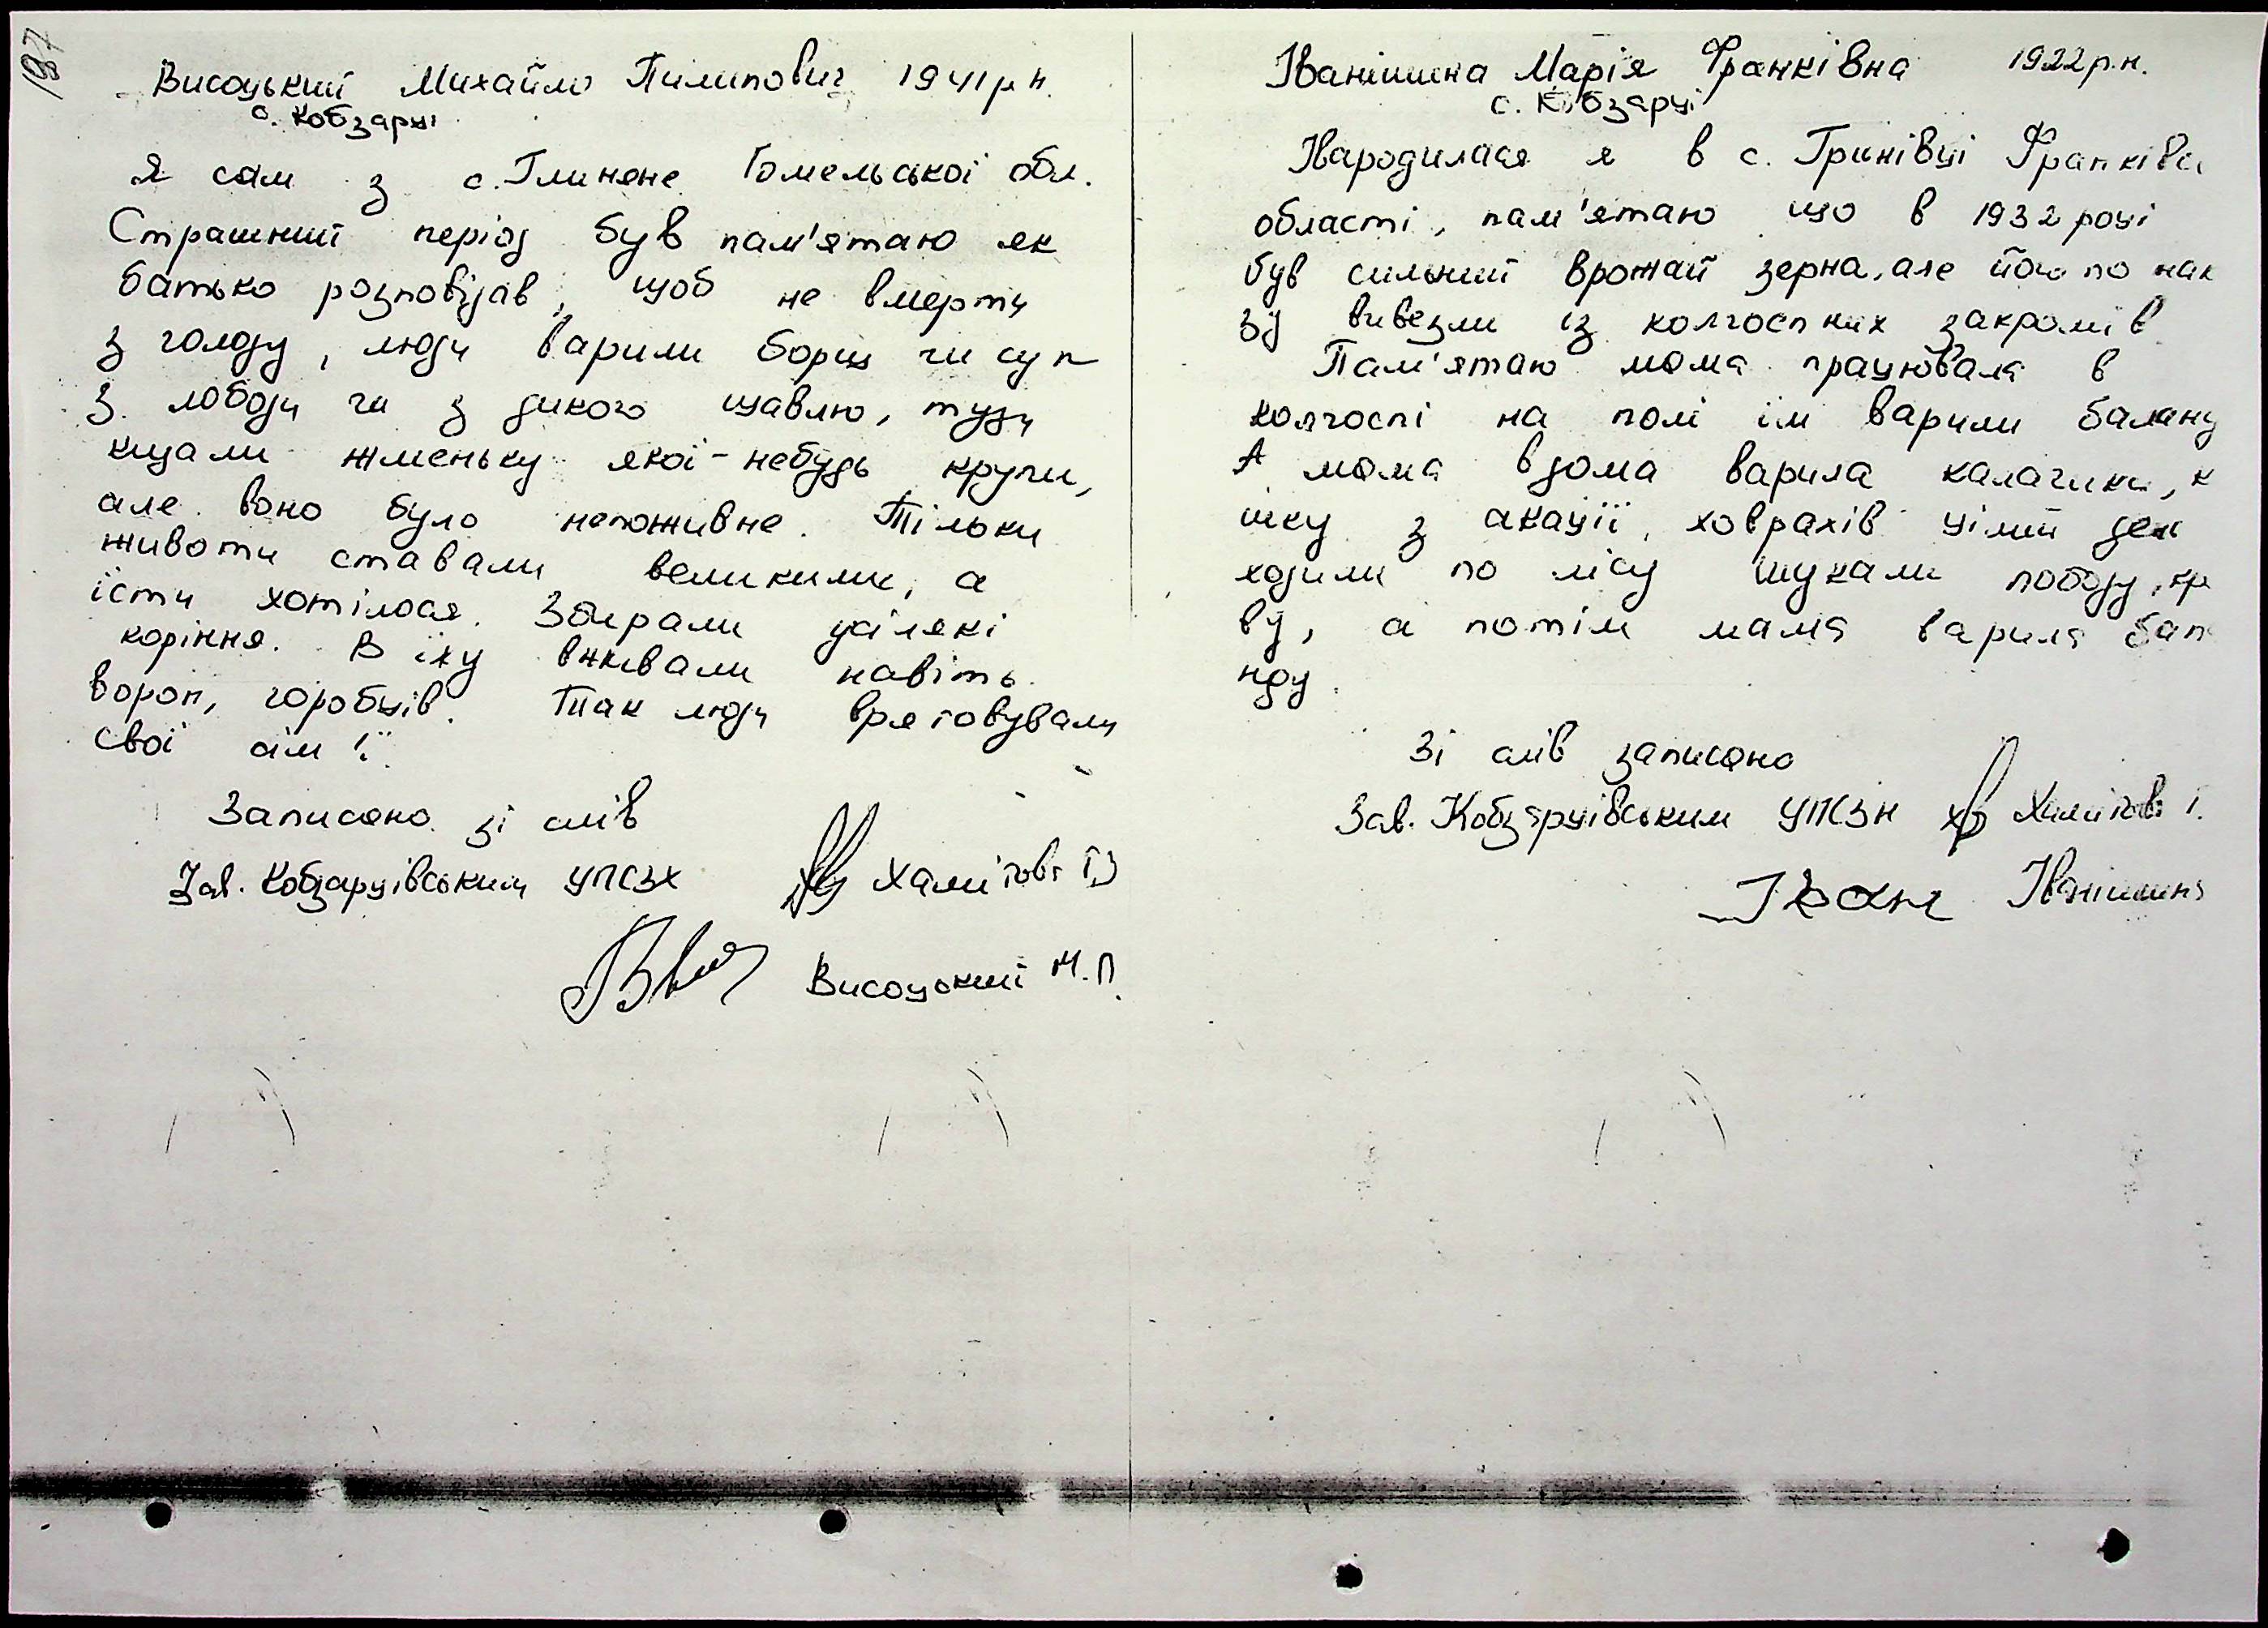 197
Висоцький Михайло Пилипович 1941 р н.
с. Кобзарці
Я сам з с. Глиняне Гомельської обл.
Страшний період був пам'ятаю як
батько розповідав, щоб не вмерти
з голоду, люди варили борщ чи суп
з лободи чи з дикого щавлю, туди
кидали жменьку якої-небудь крупи,
але воно було непоживне. Тільки
животи ставали великими, а
їсти хотілося. Збирали усілякі
коріння. В їжу вживали навіть
ворон, горобців. Так люди врятовували
свої сім'ї.
Записано зі слів
Зав. Кобзарцівським УПСЗН
Висоцький М.П.
Іванішина Марія Франківна 1922 р.н.
с. Кобзарці
Народилася я в с. Гринівці Франківсь
області, пам'ятаю що в 1932 році
був сильний врожай зерна, але його по нак
зу вивезли із колгоспних закромів
Пам'ятаю мама працювала в
колгоспі на полі їм варили балану
А мама вдома варила калачики, к
шку з акації, ховрахів цілий день
ходили по лісу шукали лободу, кр
ву, а потім мама варила бал
нду.
Зі слів записано
Зав. Кобзарцівським УПСЗН
Іван Іванішина